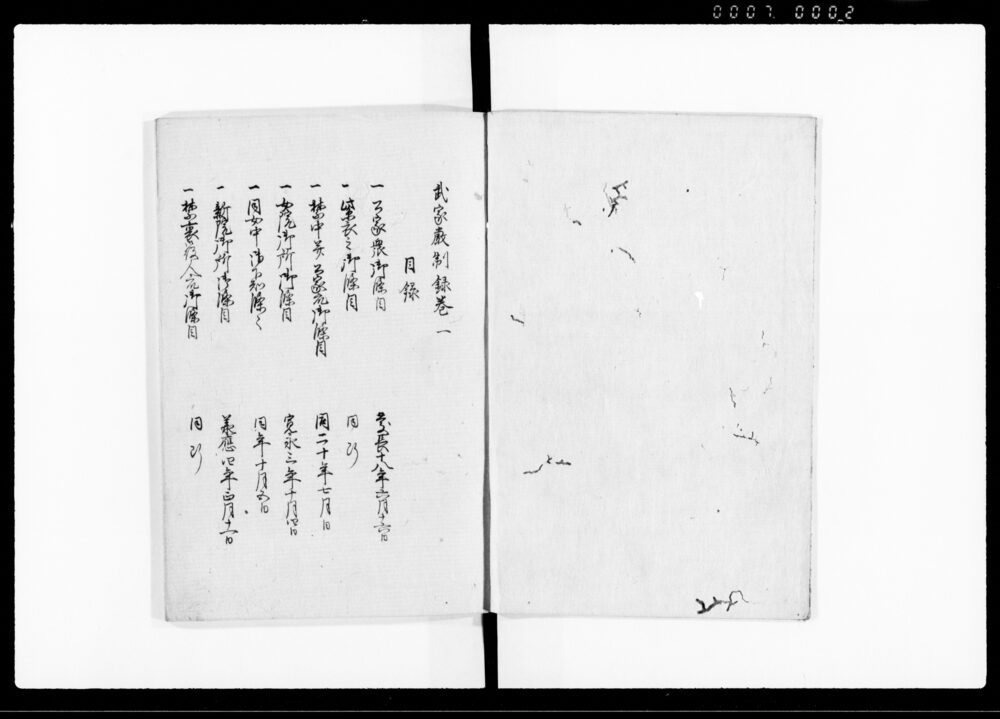 0007 0002
武家厳制録巻一
目録
一 公家衆御條目 慶長十八年六月十六日
一 紫衣之御條目 同断
一 禁中并公家充御條目 同二十年七月日
一 女院御所御條目 寛永三年十月四日
一 同女中御下知條々 同年十月五日
一 新院御所御條目 承應四年正月十一日
一 禁裏役人充御條目 同断